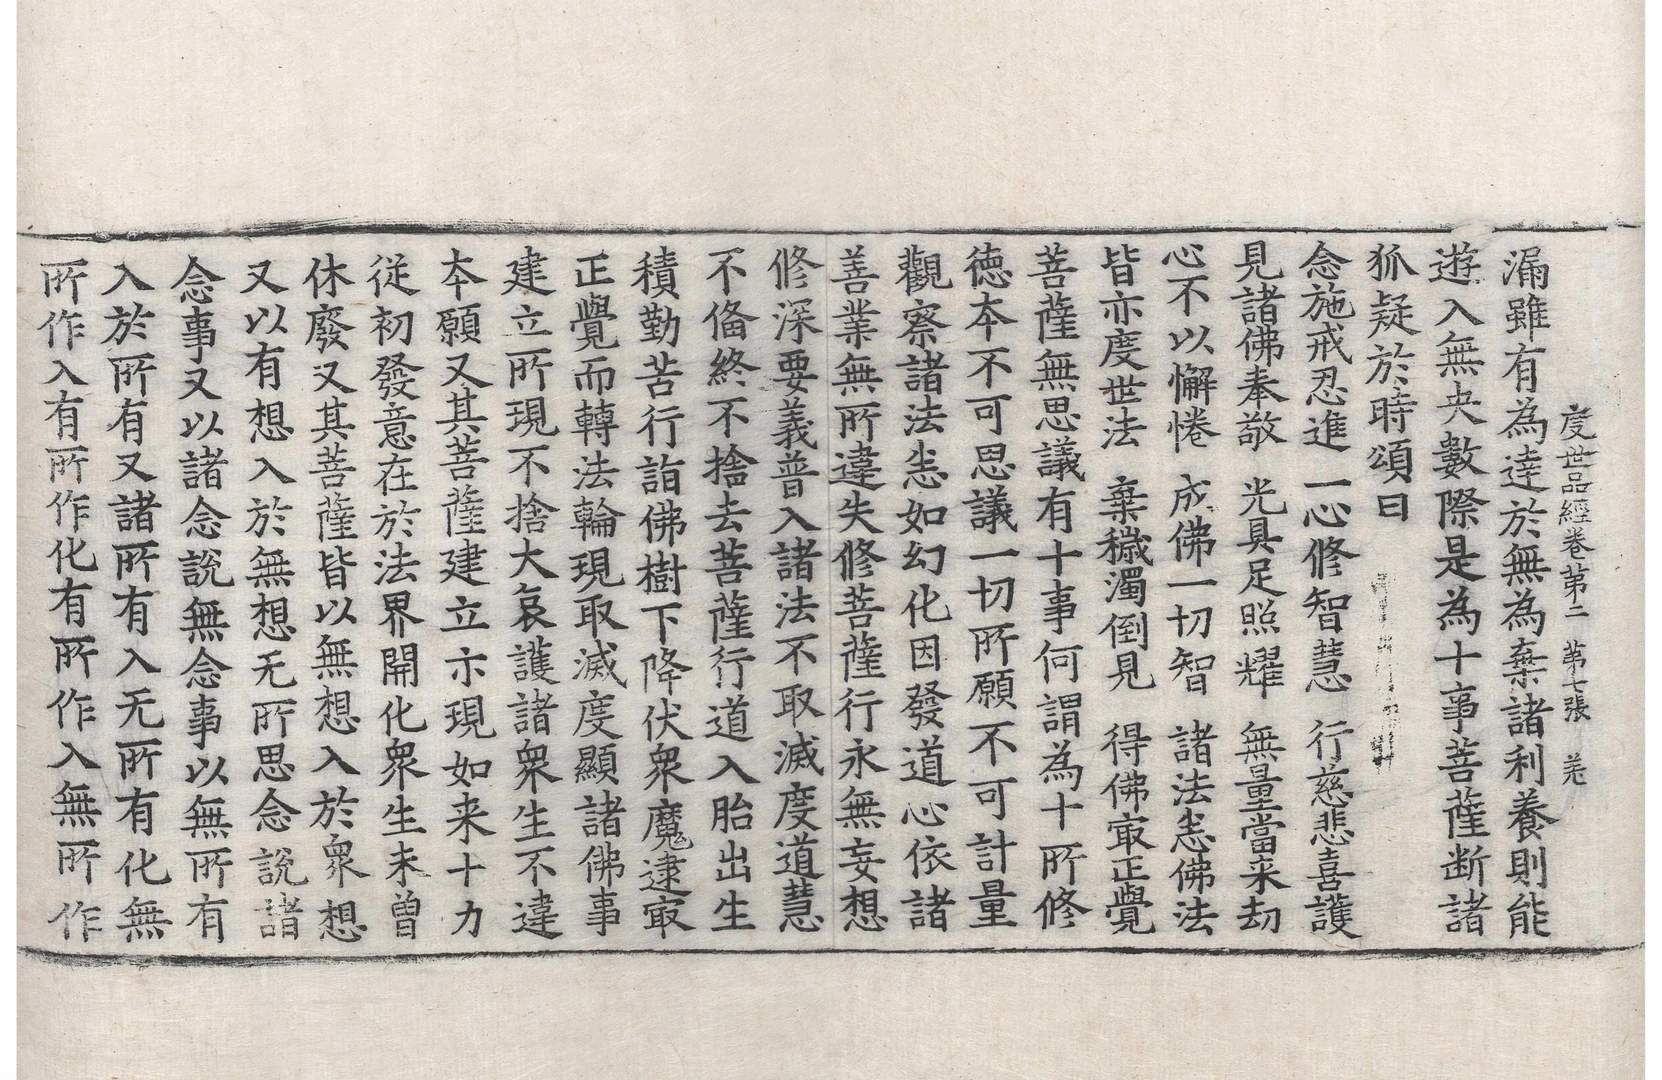 度世品經卷第二　第七張　羌
漏雖有為達於無為棄諸利養則能
遊入無央數際是為十事菩薩断諸
狐疑於時頌曰
念施戒忍進　一心修智慧　行慈悲喜護
見諸佛奉敬　光具足照耀　無量當来劫
心不以懈惓　成佛一切智　諸法悉佛法
皆亦度世法　棄穢濁倒見　得佛㝡正覺
菩薩無思議有十事何謂為十所修
徳本不可思議一切所願不可計量
觀察諸法悉如幻化因發道心依諸
善業無所違失修菩薩行永無妄想
修深要義普入諸法不取滅度道慧
不俻終不捨去菩薩行道入胎出生
積勤苦行詣佛樹下降伏衆魔逮㝡
正覺而轉法輪現取滅度顯諸佛事
建立所現不捨大哀護諸衆生不違
本願又其菩薩建立示現如来十力
從初發意在於法界開化衆生未曽
休廢又其菩薩皆以無想入於衆想
又以有想入於無想无所思念說諸
念事又以諸念說無念事以無所有
入於所有又諸所有入无所有化無
所作入有所作化有所作入無所作